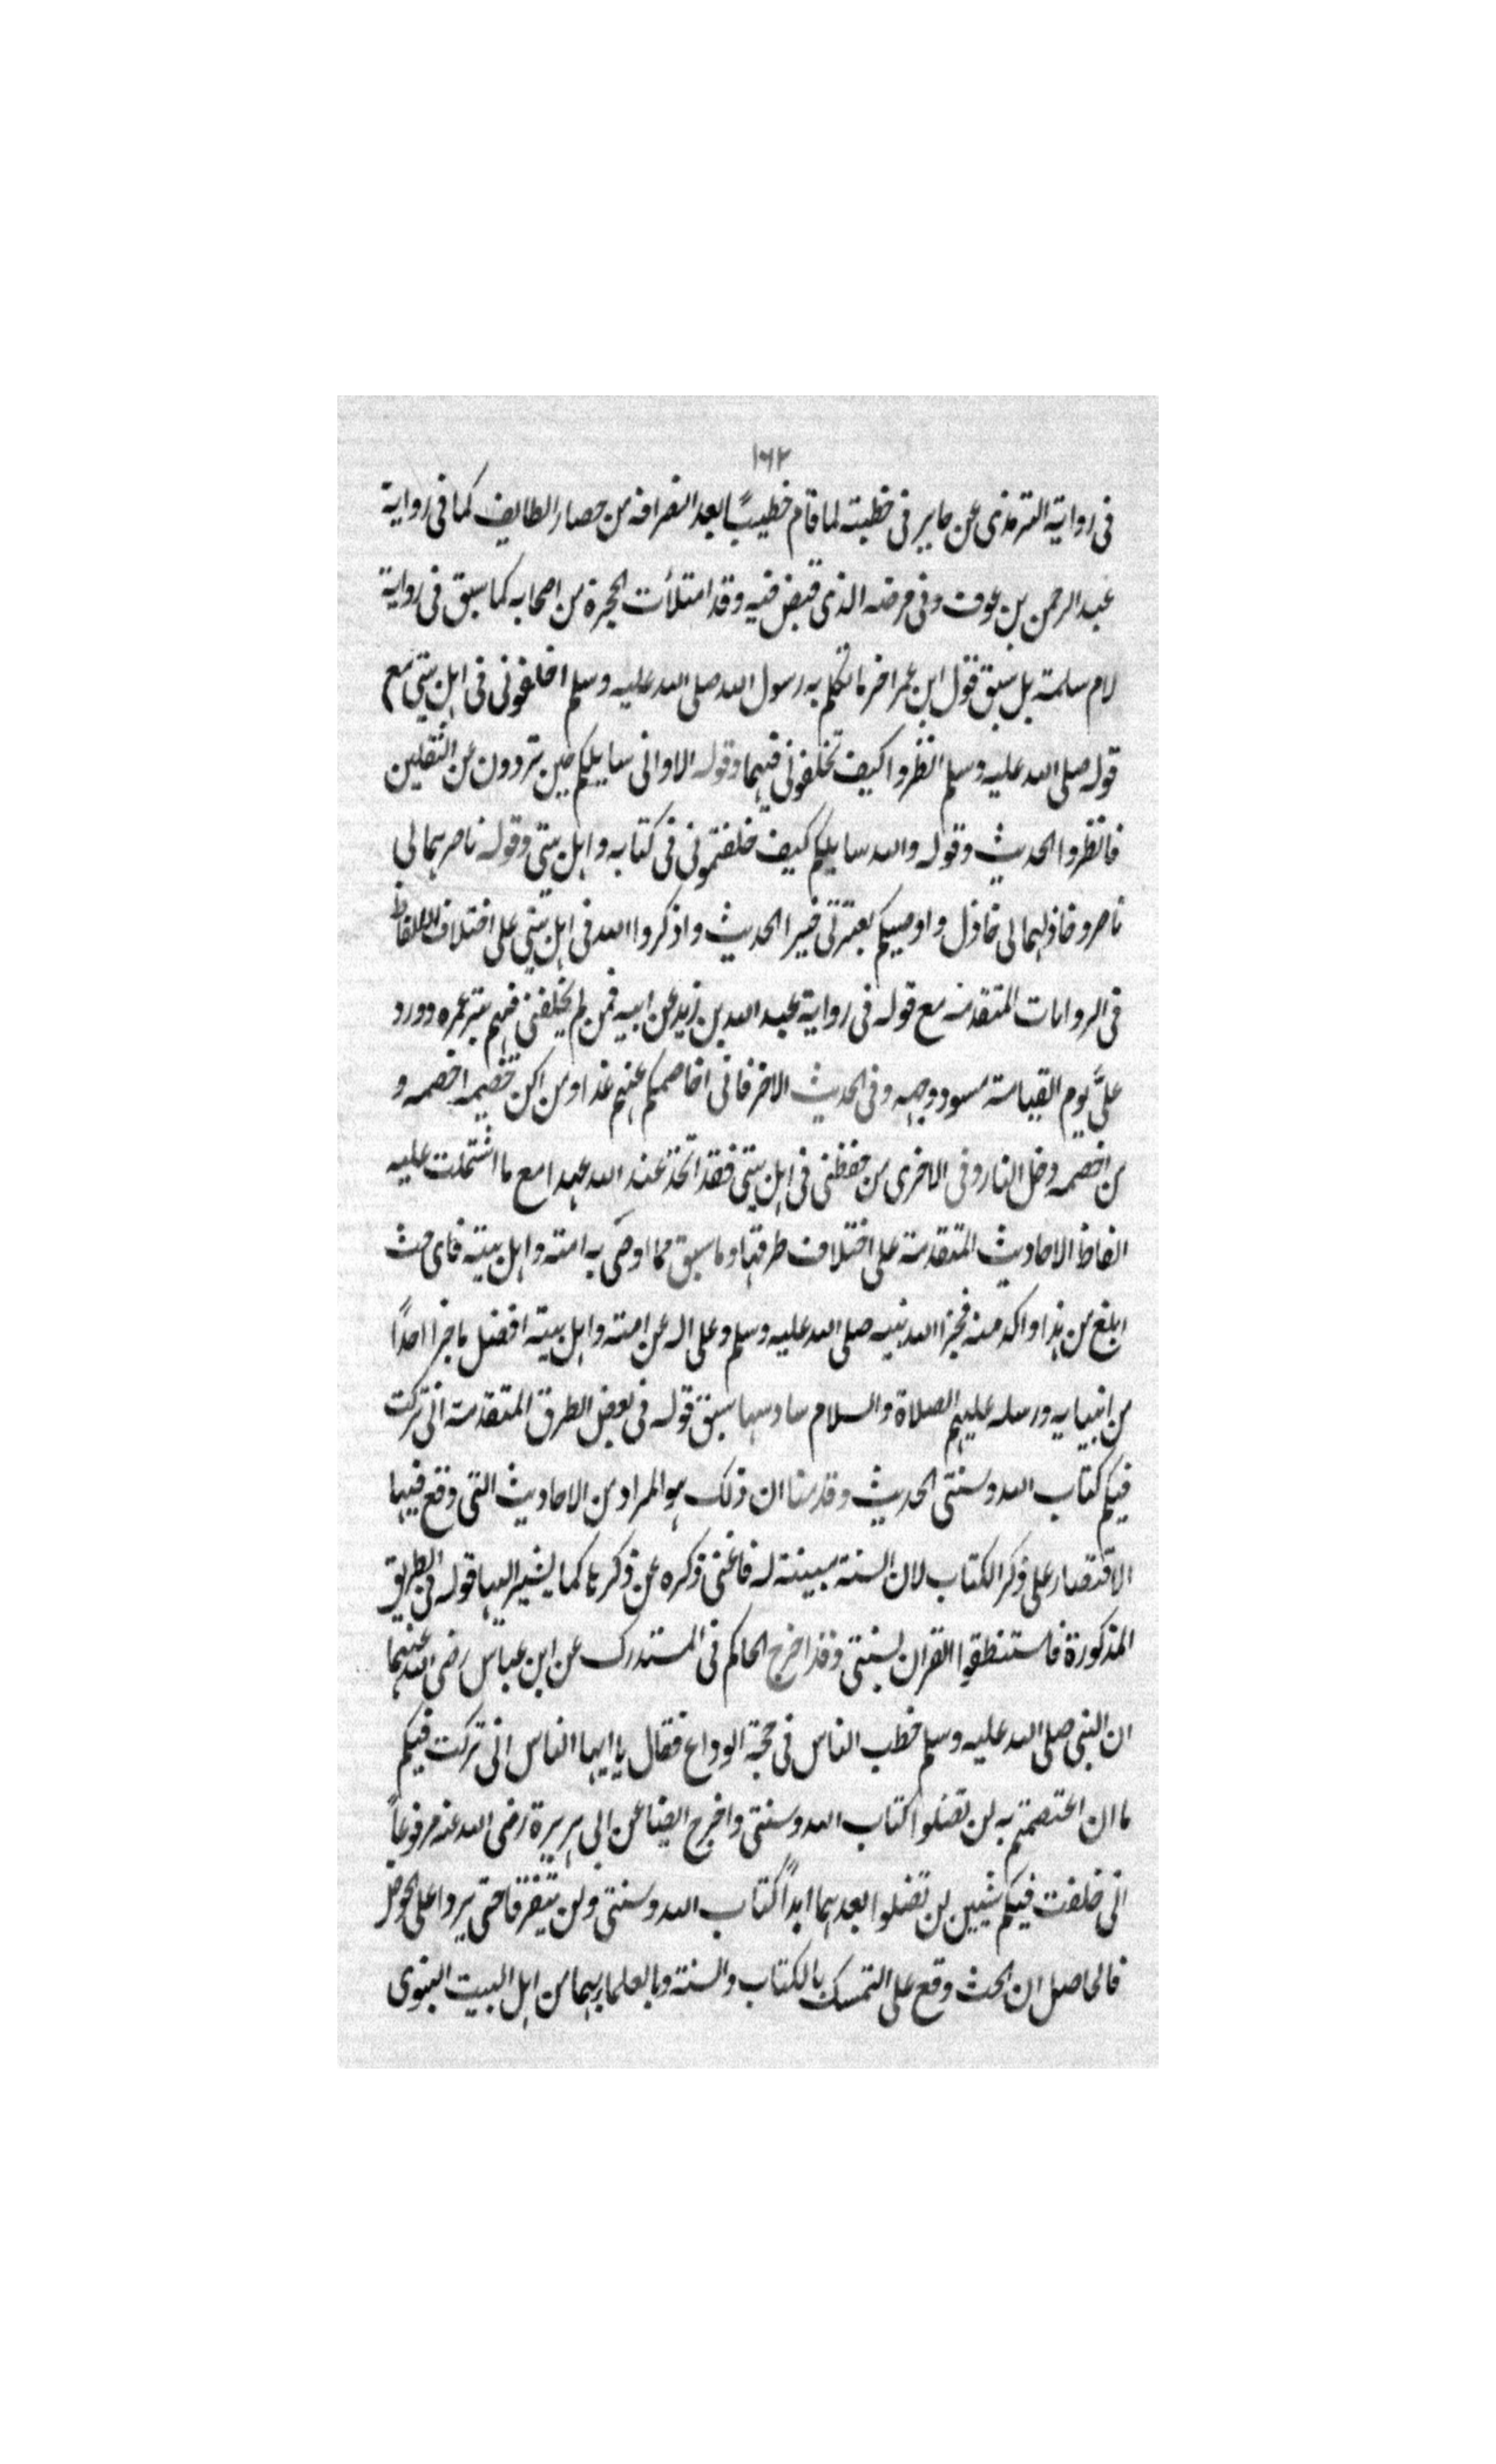 ١٦٢
فى رواية الترمذى عن جابر فى خطبته لما قام خطيبًا بعد انصرافه من حصار الطايف كما فى رواية
عبد الرحمن بن عوف وفى مرضه الذى قبض فيه وقد امتلأت الحجرة من اصحابه كما سبق فى رواية
لام سلمة بل سبق قول ابن عمر اخر ما تكلم به رسول الله صلى الله عليه وسلم اخلفونى فى اهل بيتى مع
قوله صلى الله عليه وسلم انظروا كيف تخلفونى فيهما وقوله الا وانى سايلكم حين تردون عن الثقلين
فانظروا الحديث وقوله والله سايلكم كيف خلفتمونى فى كتابه واهل بيتى وقوله ناصرهما لى
ناصر وخاذلهما لى خاذل واوصيكم بعترتى خيرا الحديث واذكروا الله فى اهل بيتى على اختلاف الالفاظ
فى الروايات المتقدمة مع قوله فى رواية عبد الله بن زيد عن ابيه فمن لم يخلفنى فيهم بتر عمره وورد
علىَّ يوم القيامة مسودا وجهه وفى الحديث الاخر فانى اخاصمكم عنهم غدا ومن اكن خصيمه اخصمه و
من اخصمه دخل النار وفى الاخرى من حفظنى فى اهل بيتى فقد اتخذ عند الله عهدا مع ما اشتملت عليه
الفاظ الاحاديث المتقدمة على اختلاف طرقها وما سبق مما اوصى به امته واهل بيته فاى حث
ابلغ من هذا واكد منه فجزا الله نبيه صلى الله عليه وسلم وعلى اله عن امته واهل بيته افضل ما جزا احداً
من انبيايه ورسله عليهم الصلاة والسلام سادسها سبق قوله فى بعض الطرق المتقدمة انى تركت
فيكم كتاب الله وسنتى الحديث وقدمنا ان ذلك هو المراد من الاحاديث التى وقع فيها
الاقتصار على ذكر الكتاب لان السنة مبينة له فاغنى ذكره عن ذكرها كما يشير اليها قوله فى الطريق
المذكورة فاستنطقوا القران بسنتى وقد اخرج الحاكم فى المستدرك عن ابن عباس رضى الله عنهما
ان النبى صلى الله عليه وسلم خطب الناس فى حجة الوداع فقال يا ايها الناس انى تركت فيكم
ما ان اعتصمتم به لن تضلوا كتاب الله وسنتى واخرج ايضا عن ابى هريرة رضى الله عنه مرفوعاً
انى خلفت فيكم شيين لن تضلوا بعدهما ابداً كتاب الله وسنتى ولن يتفرقا حتى يردا على الحوض
فالحاصل ان الحث وقع على التمسك بالكتاب والسنة وبالعلما بهما من اهل البيت النبوى